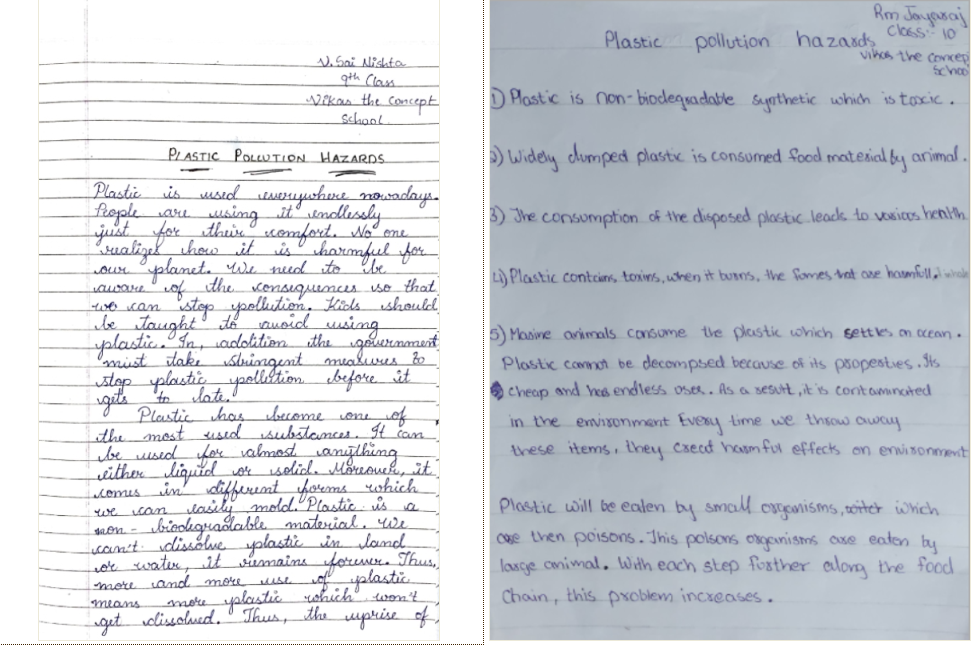 V. Sai Nishta
9th Class
Vikas the Concept
School
PLASTIC POLLUTION HAZARDS
Plastic is used everywhere nowadays.
People are using it endlessly
just for their comfort. No one
realizes how it is harmful for
our planet. We need to be
aware of the consequences so that
we can stop pollution. Kids should
be taught to avoid using
plastic. In, addition the government
must take stringent measures to
stop plastic pollution before it
gets to late.
Plastic has become one of
the most used substances. It can
be used for almost anything
either liquid or solid. Moreover, it
comes in different forms which
we can easily mold. Plastic is a
non - biodegradable material. We
can't dissolve plastic in land
or water, it remains forever. Thus,
more and more use of plastic
means more plastic which won't
get dissolved. Thus, the uprise of
Rm Jayaraj
Class:- 10
Plastic pollution hazards
Vikas the concep
School
1) Plastic is non-biodegradable synthetic which is toxic.
2) Widely dumped plastic is consumed food material by animal.
3) The consumption of the disposed plastic leads to various health
4) Plastic contains toxins, when it burns, the fomes that are harmfull.
5) Marine animals consume the plastic which settles on ocean.
Plastic cannot be decompsed because of its properties. Its
cheap and has endless uses. As a result, it is contaminated
in the environment Every time we throw away
these items, they harmful effects on environment
Plastic will be eaten by small organisms, which
are then poisons. This poisons organisms are eaten by
large animal. With each step further along the food
chain, this problem increases.